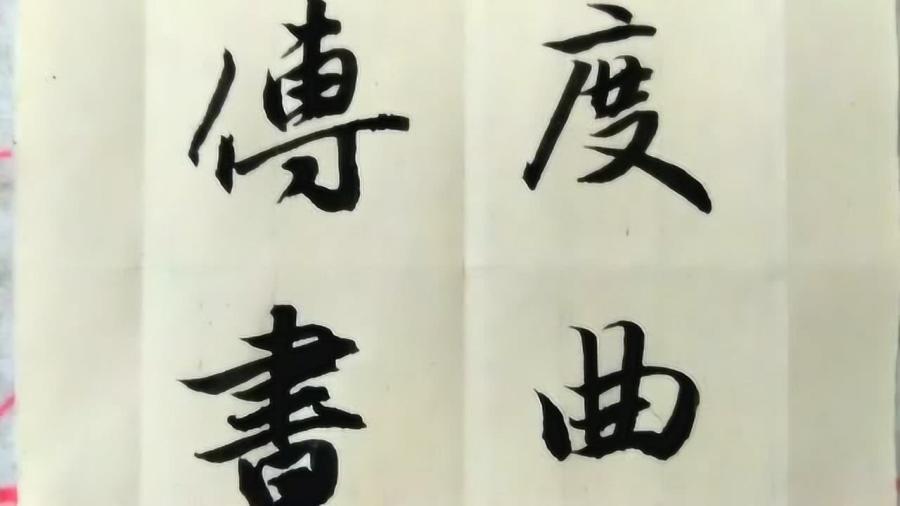 度曲
傳書